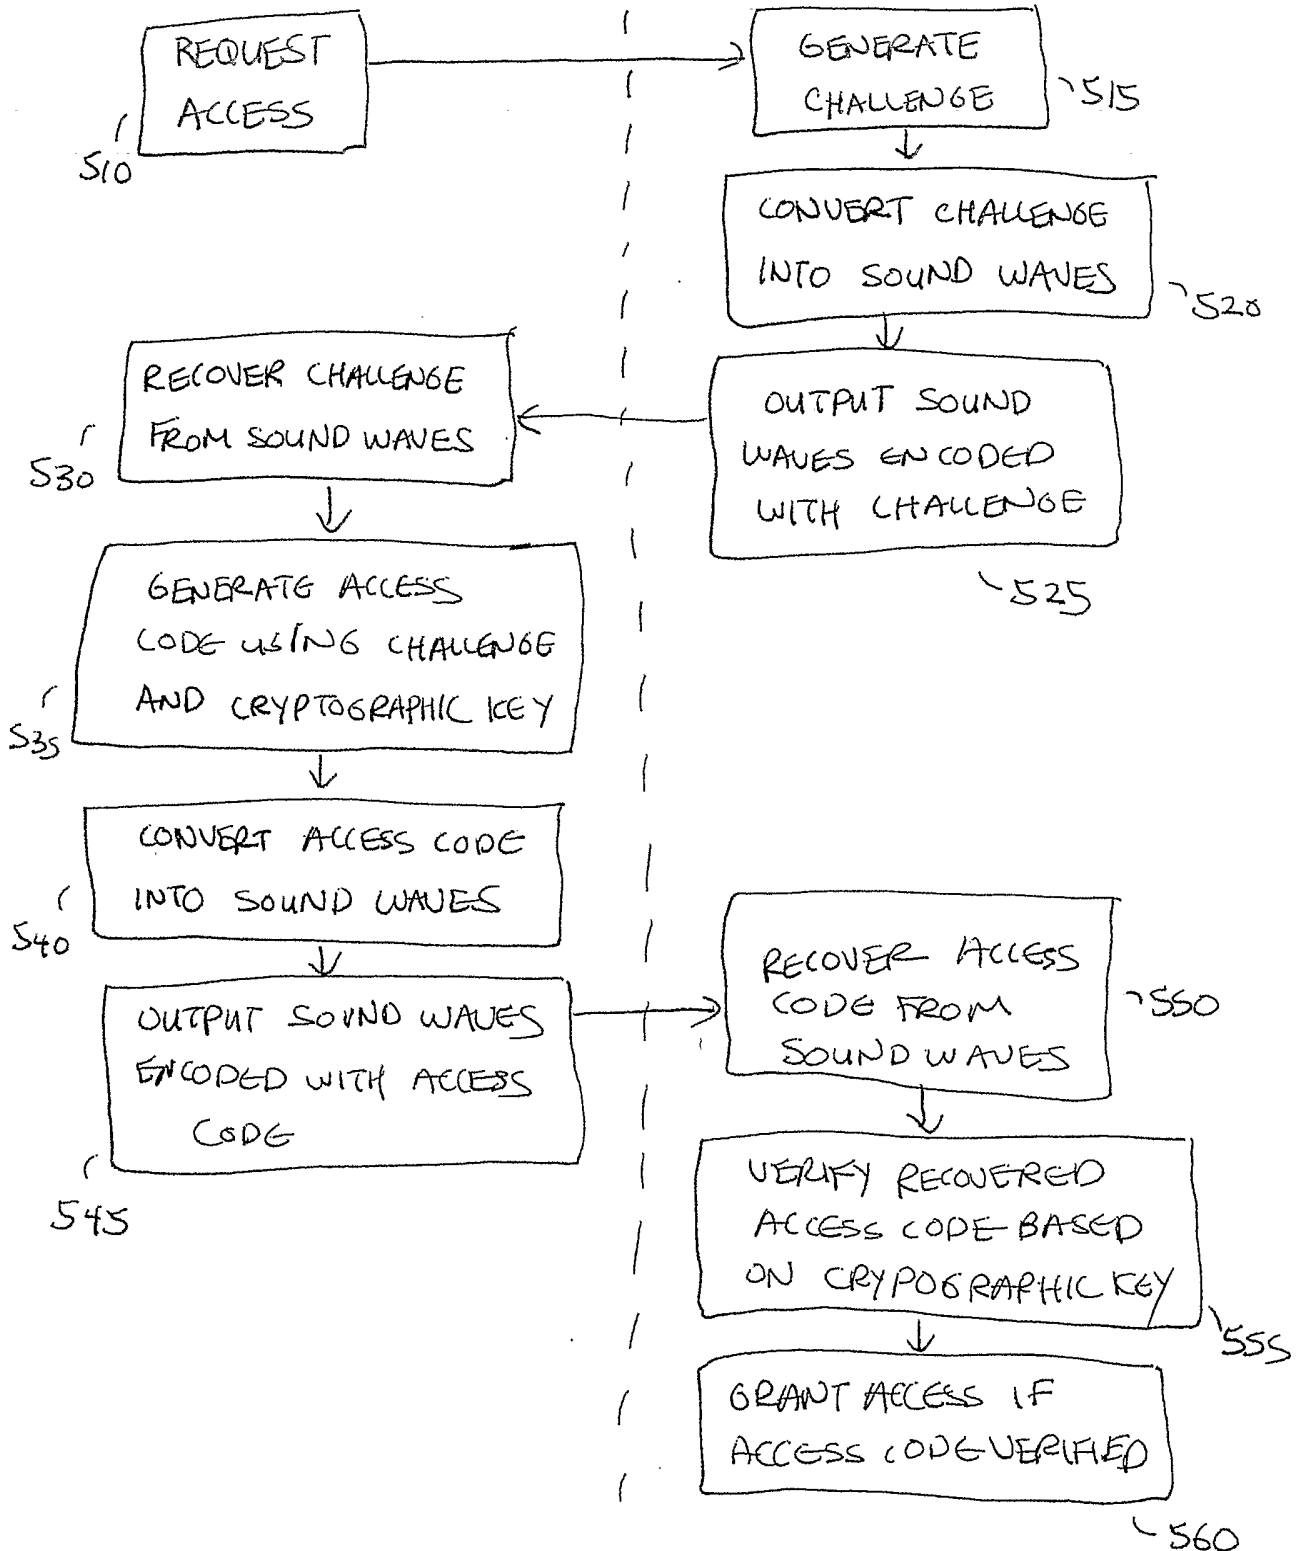 REQUEST
ACCESS
510
GENERATE
CHALLENGE
515
CONVERT CHALLENGE
INTO SOUND WAVES
520
OUTPUT SOUND
WAVES ENCODED
WITH CHALLENGE
525
RECOVER CHALLENGE
FROM SOUND WAVES
530
GENERATE ACCESS
CODE USING CHALLENGE
AND CRYPTOGRAPHIC KEY
535
CONVERT ACCESS CODE
INTO SOUND WAVES
540
OUTPUT SOUND WAVES
ENCODED WITH ACCESS
CODE
545
RECOVER ACCESS
CODE FROM
SOUND WAVES
550
VERIFY RECOVERED
ACCESS CODE BASED
ON CRYPOGRAPHIC KEY
555
GRANT ACCESS IF
ACCESS CODE VERIFIED
560